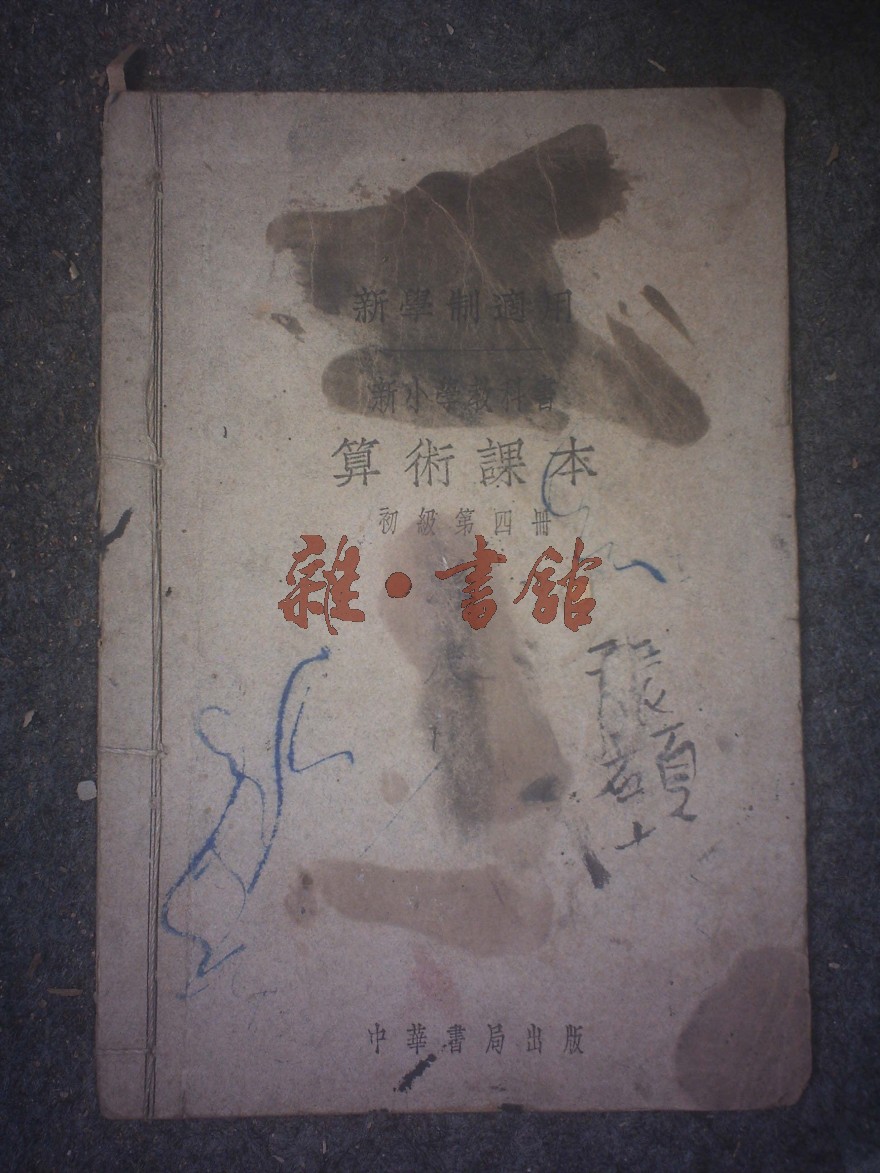 新學制適用
新小學教科書
算術課本
初級第四冊
雜·書館
張
中華書局出版